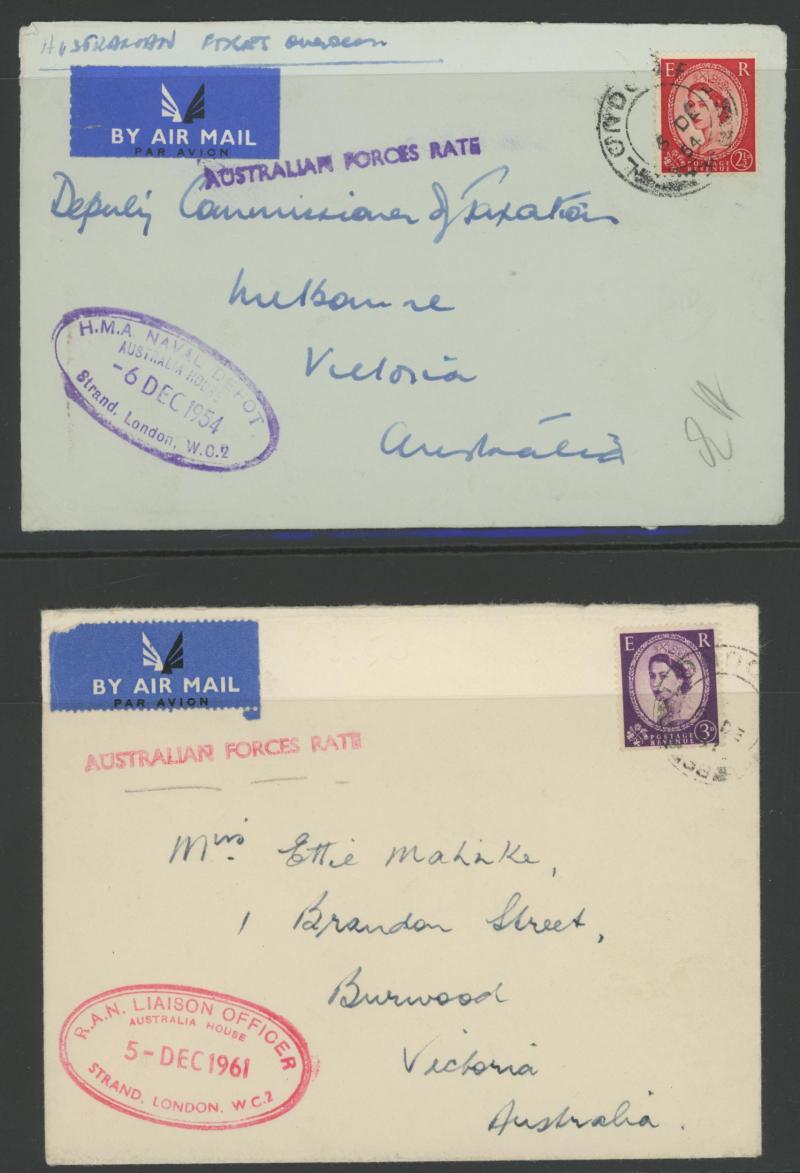 AUSTRALIAN FORCES Overseas
BY AIR MAIL
PAR AVION
AUSTRALIAN FORCES RATE
E R
2½D
POSTAGE
REVENUE
LONDON
DE
54
Deputy Commissioner of Taxation
Melbourne
Victoria
Australia
H.M.A. NAVAL DEPOT,
AUSTRALIA HOUSE
-6 DEC 1954
Strand, London, W.C.2
BY AIR MAIL
PAR AVION
AUSTRALIAN FORCES RATE
E R
POSTAGE
REVENUE
3D
DE
Mrs. Ettie Mahnke,
1 Brandon Street,
Burwood
Victoria
Australia.
R.A.N. LIAISON OFFICER
AUSTRALIA HOUSE
5-DEC 1961
STRAND, LONDON, W.C.2